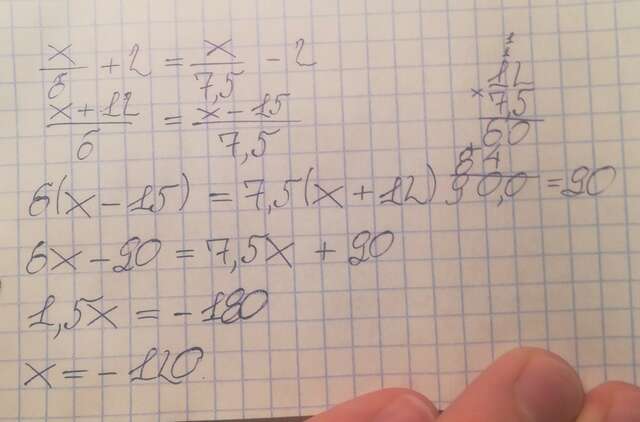 x/6 + 2 = x/7,5 - 2
x+12/6 = x-15/7,5
6(x-15) = 7,5(x+12)
6x-90 = 7,5x + 90
1,5x = -180
x = -120.
12
× 7,5
60
+ 84
90,0 = 90